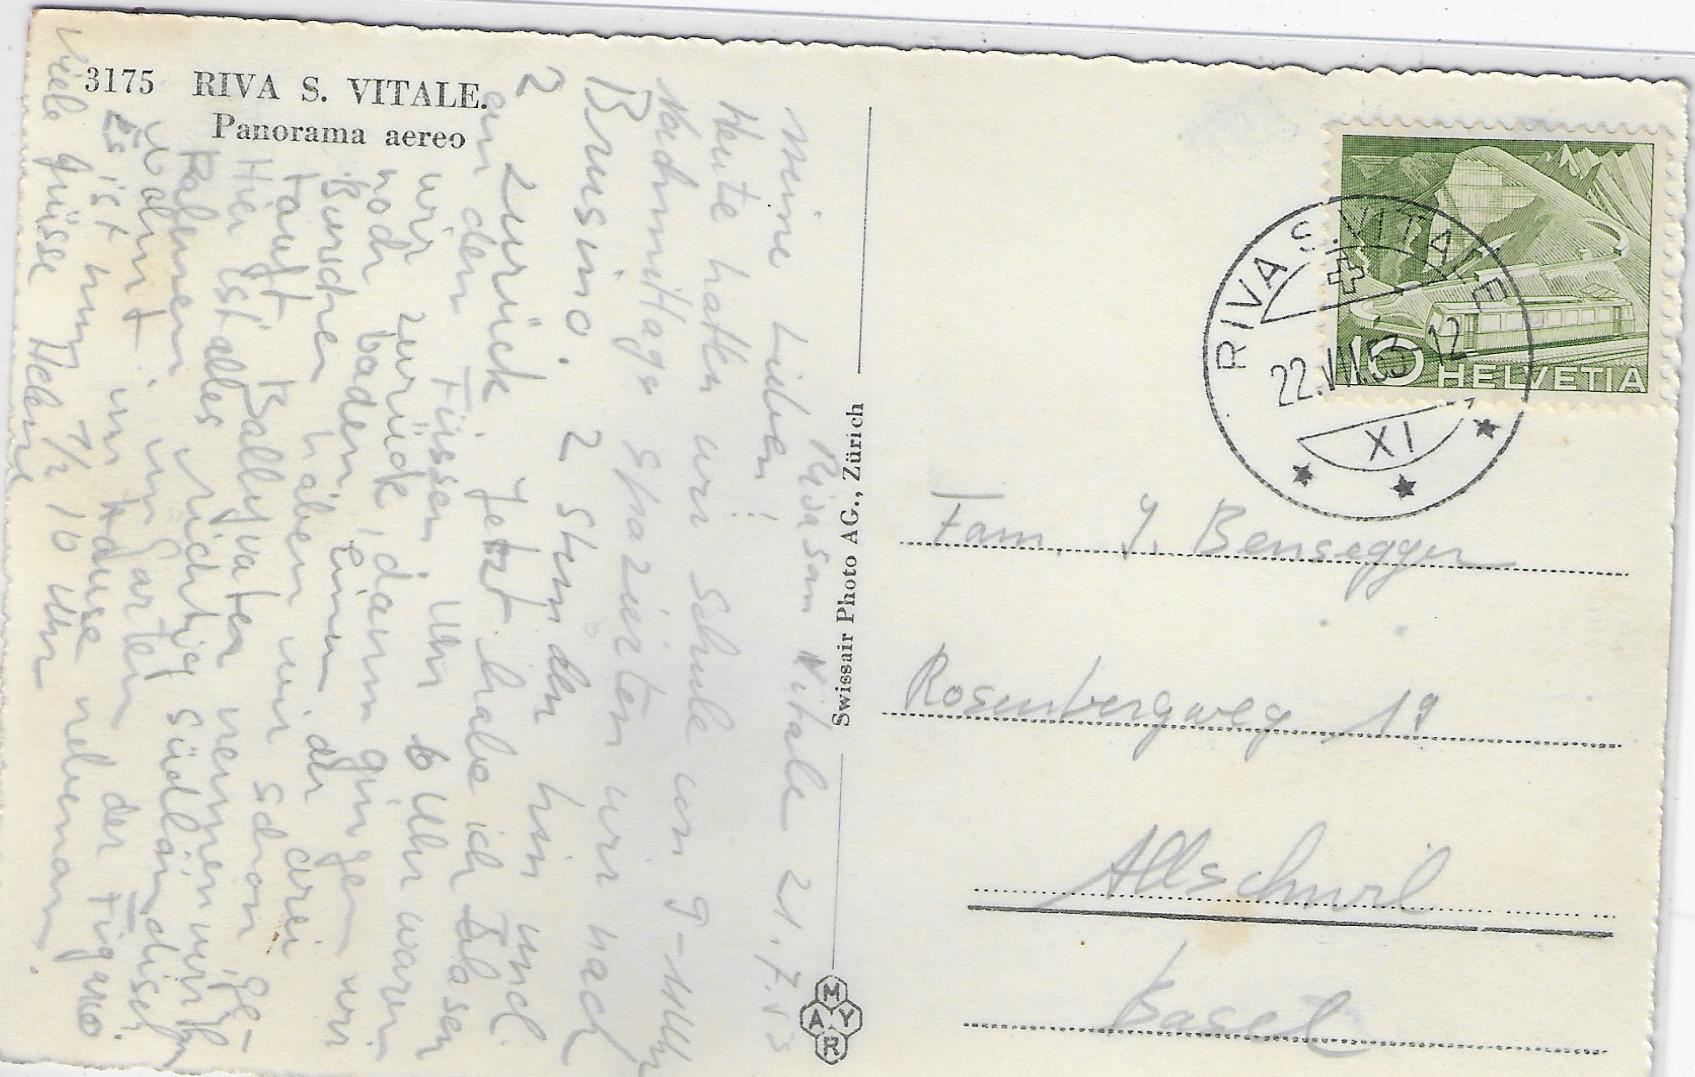 3175 RIVA S. VITALE.
Panorama aereo
Riva san Vitale 21.7.53
Meine Lieben!
Heute hatten wir Schule von 9-11 Uhr
Nachmittags spazierten wir nach
Brusino. 2 Stunden hin und
2 zurück. Jetzt habe ich Blasen
an den Füssen. Um 6 Uhr waren
wir zurück, dann gingen wir
noch baden, einen der drei
Burschen haben wir schon ge-
tauft. Ballyvater nennen wir ihn
Hier ist alles richtig südländisch
Palemen im Garten der Figaro
wohnt im Hause nebenan.
Es ist nun 1/2 10 Uhr
Viele Grüsse Helene
Swissair Photo AG., Zürich
MAYR
RIVA S. VITALE
22.VII.53-12
XI
10 HELVETIA
Fam. J. Bensegger
Rosenbergweg 19
Allschwil
Basel